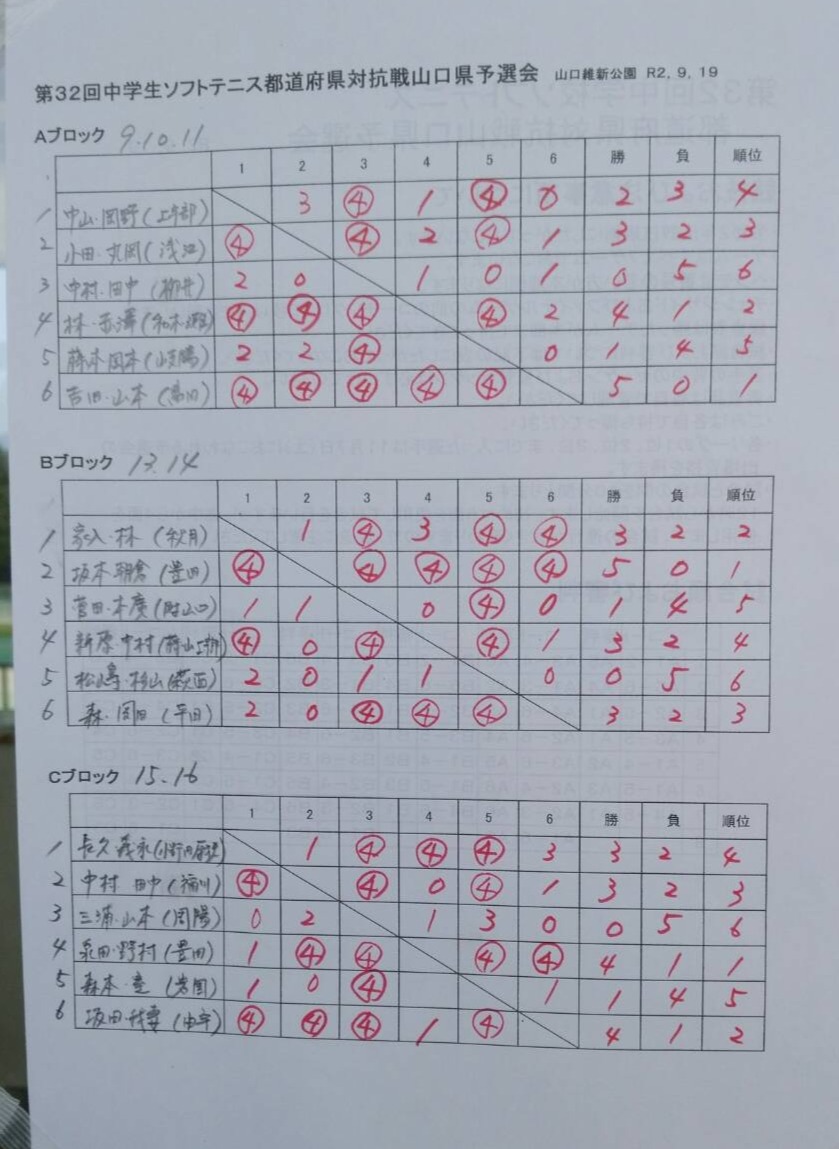 第32回中学生ソフトテニス都道府県対抗戦山口県予選会 山口維新公園 R2,9,19
Aブロック 9.10.11
1 2 3 4 5 6 勝 負 順位
1 中山・岡野(上宇部) 3 ④ 1 ④ 0 2 3 4
2 小田・丸岡(浅江) ④ ④ 2 ④ 1 3 2 3
3 中村・田中(柳井) 2 0 1 0 1 0 5 6
4 林・赤澤 ④ ④ ④ ④ 2 4 1 2
5 藤本・岡本 2 2 ④ 0 1 4 5
6 吉田・山本 ④ ④ ④ ④ ④ 5 0 1
Bブロック 13.14
1 2 3 4 5 6 勝 負 順位
1 家入・林(秋月) 1 ④ 3 ④ ④ 3 2 2
2 坂本・朝倉(豊田) ④ ④ ④ ④ ④ 5 0 1
3 菅田・本廣(附山口) 1 1 0 ④ 0 1 4 5
4 新原・中村 ④ 0 ④ ④ 1 3 2 4
5 松嶋・杉山(萩西) 2 0 1 1 0 0 5 6
6 森・岡田(平田) 2 0 ④ ④ ④ 3 2 3
Cブロック 15.16
1 2 3 4 5 6 勝 負 順位
1 長久・義永 1 ④ ④ ④ 3 3 2 4
2 中村 田中(福川) ④ ④ 0 ④ 1 3 2 3
3 三浦・山本(周陽) 0 2 1 3 0 0 5 6
4 泉田・野村(豊田) 1 ④ ④ ④ ④ 4 1 1
5 森本・(岩国) 1 0 ④ 1 1 4 5
6 坂田・我妻(由宇) ④ ④ ④ 1 ④ 4 1 2